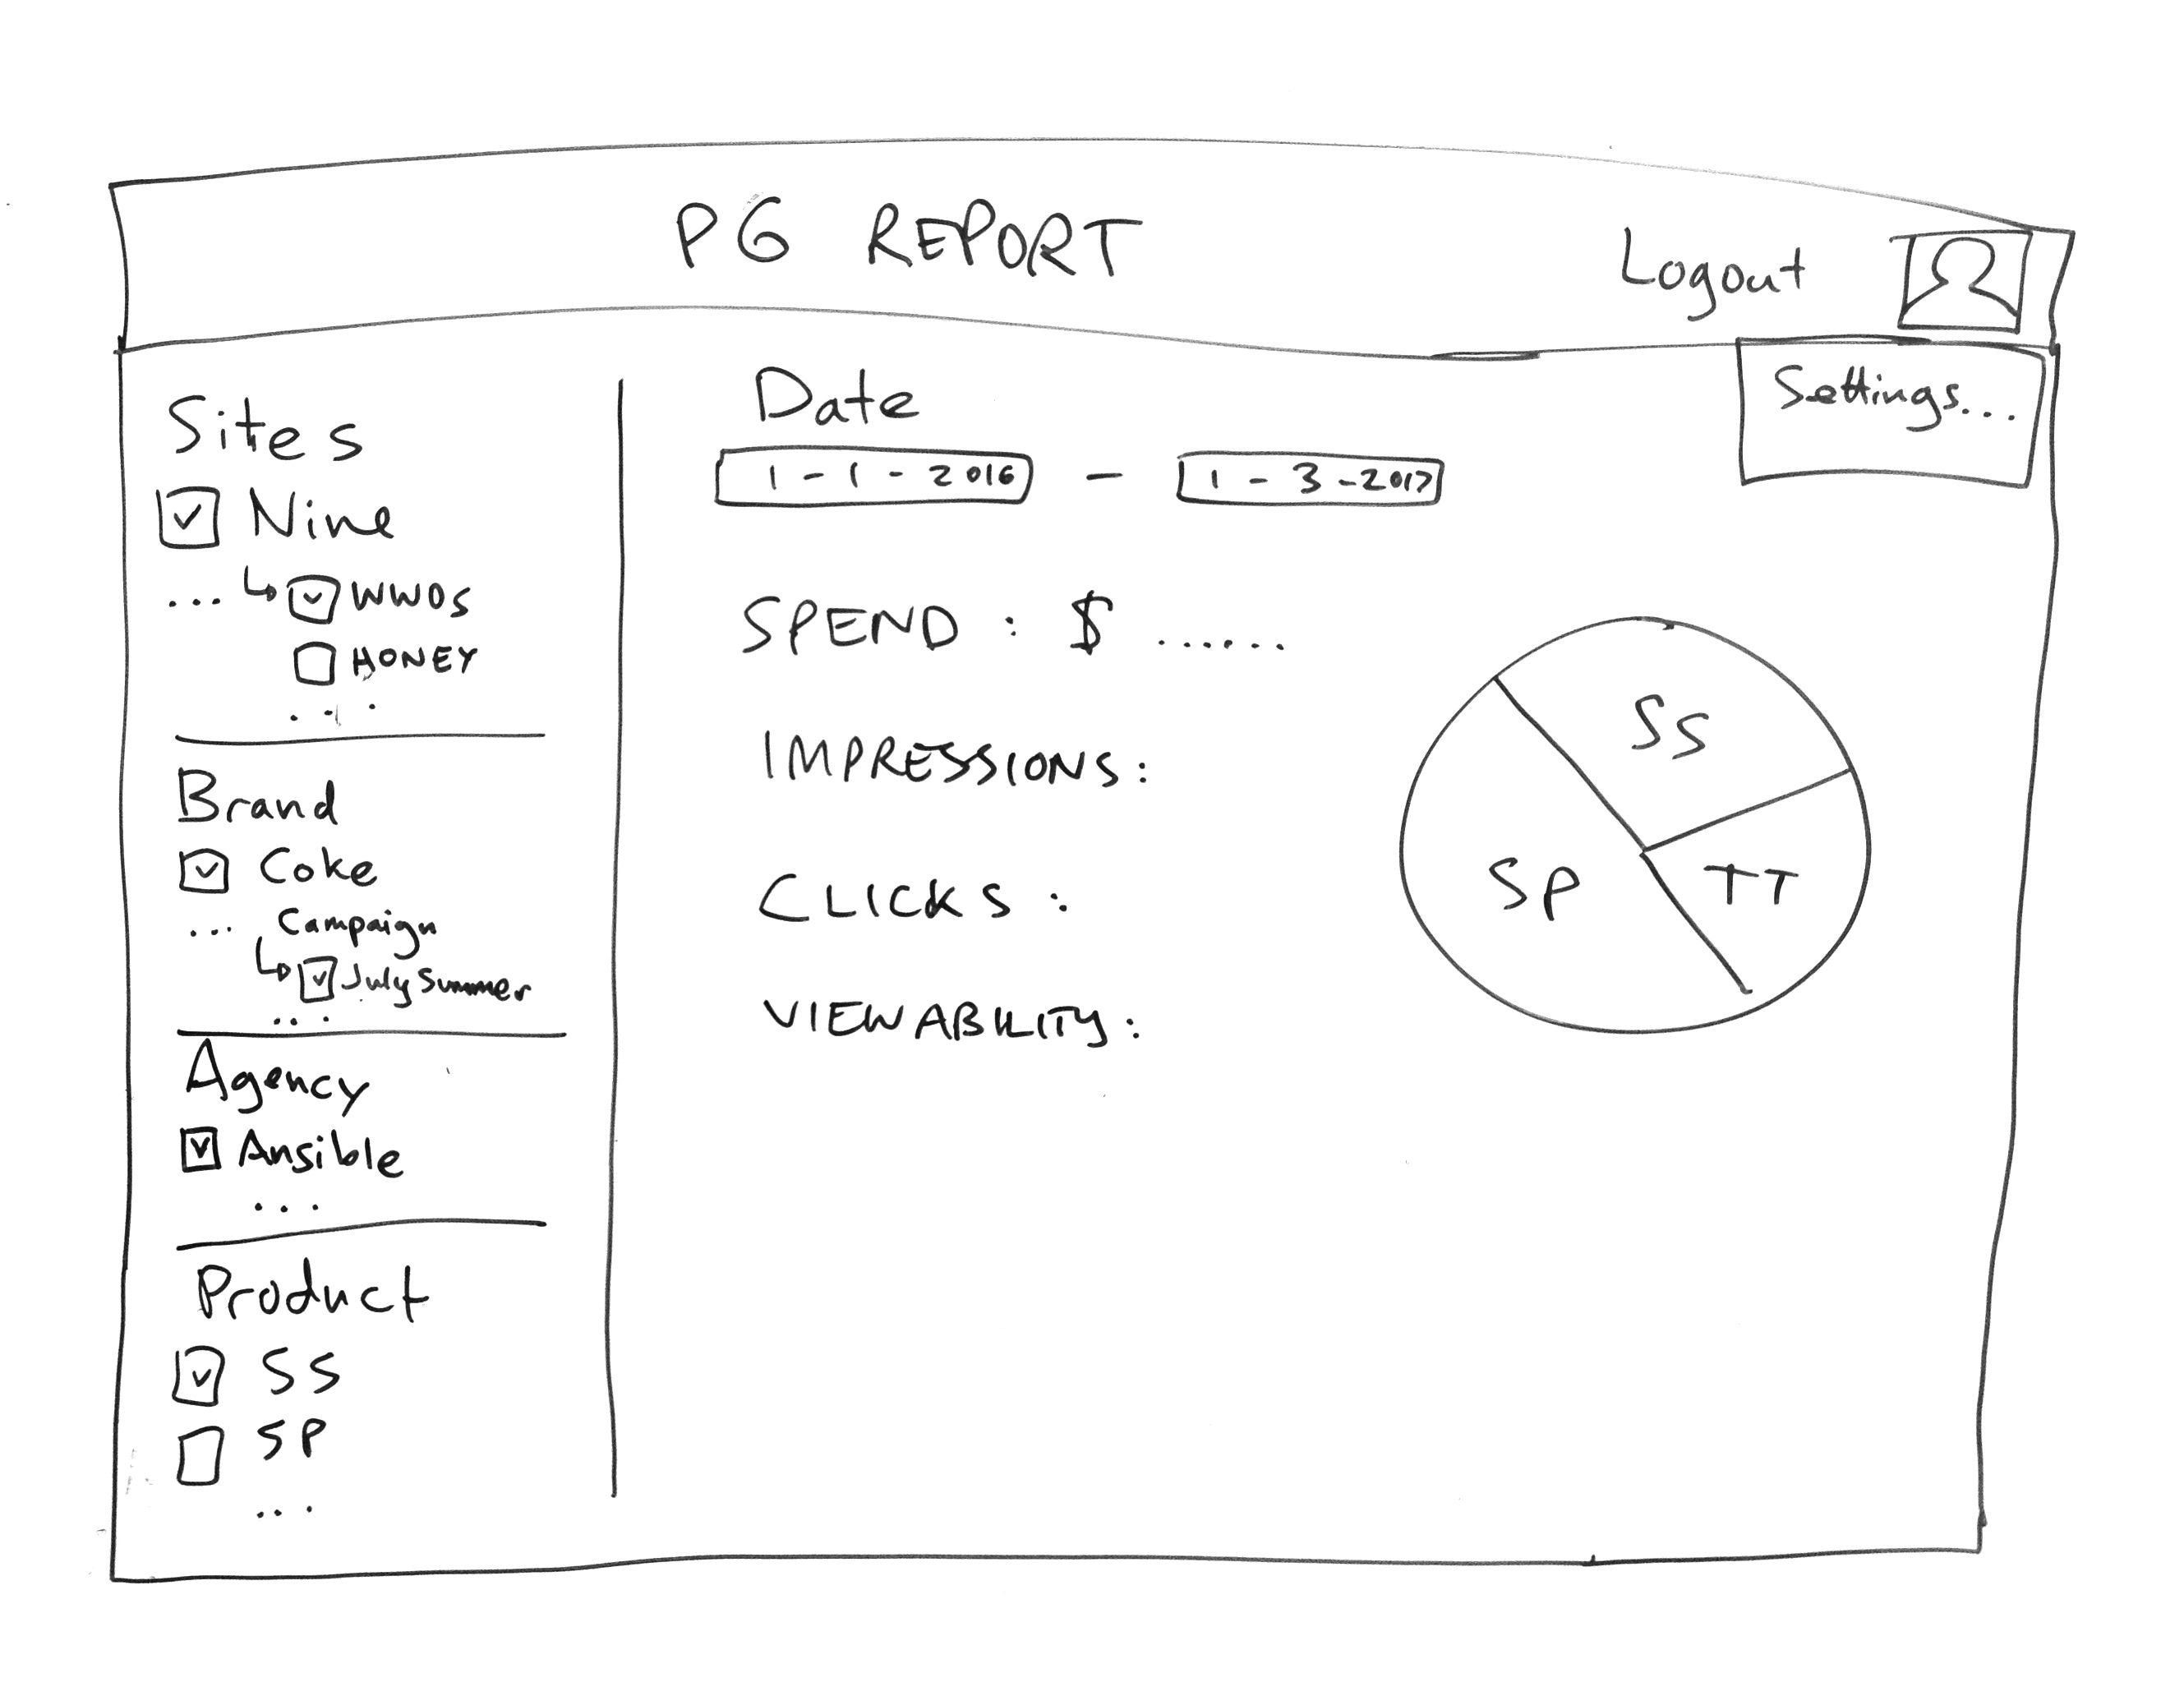 PG REPORT
Logout
Settings...
Sites
Nine
... WWOS
HONEY
...
Brand
Coke
... Campaign
July Summer
...
Agency
Ansible
...
Product
SS
SP
...
Date
1-1-2016 - 1-3-2017
SPEND : $ ......
IMPRESSIONS:
CLICKS :
VIEWABILITY:
SS
SP
TT